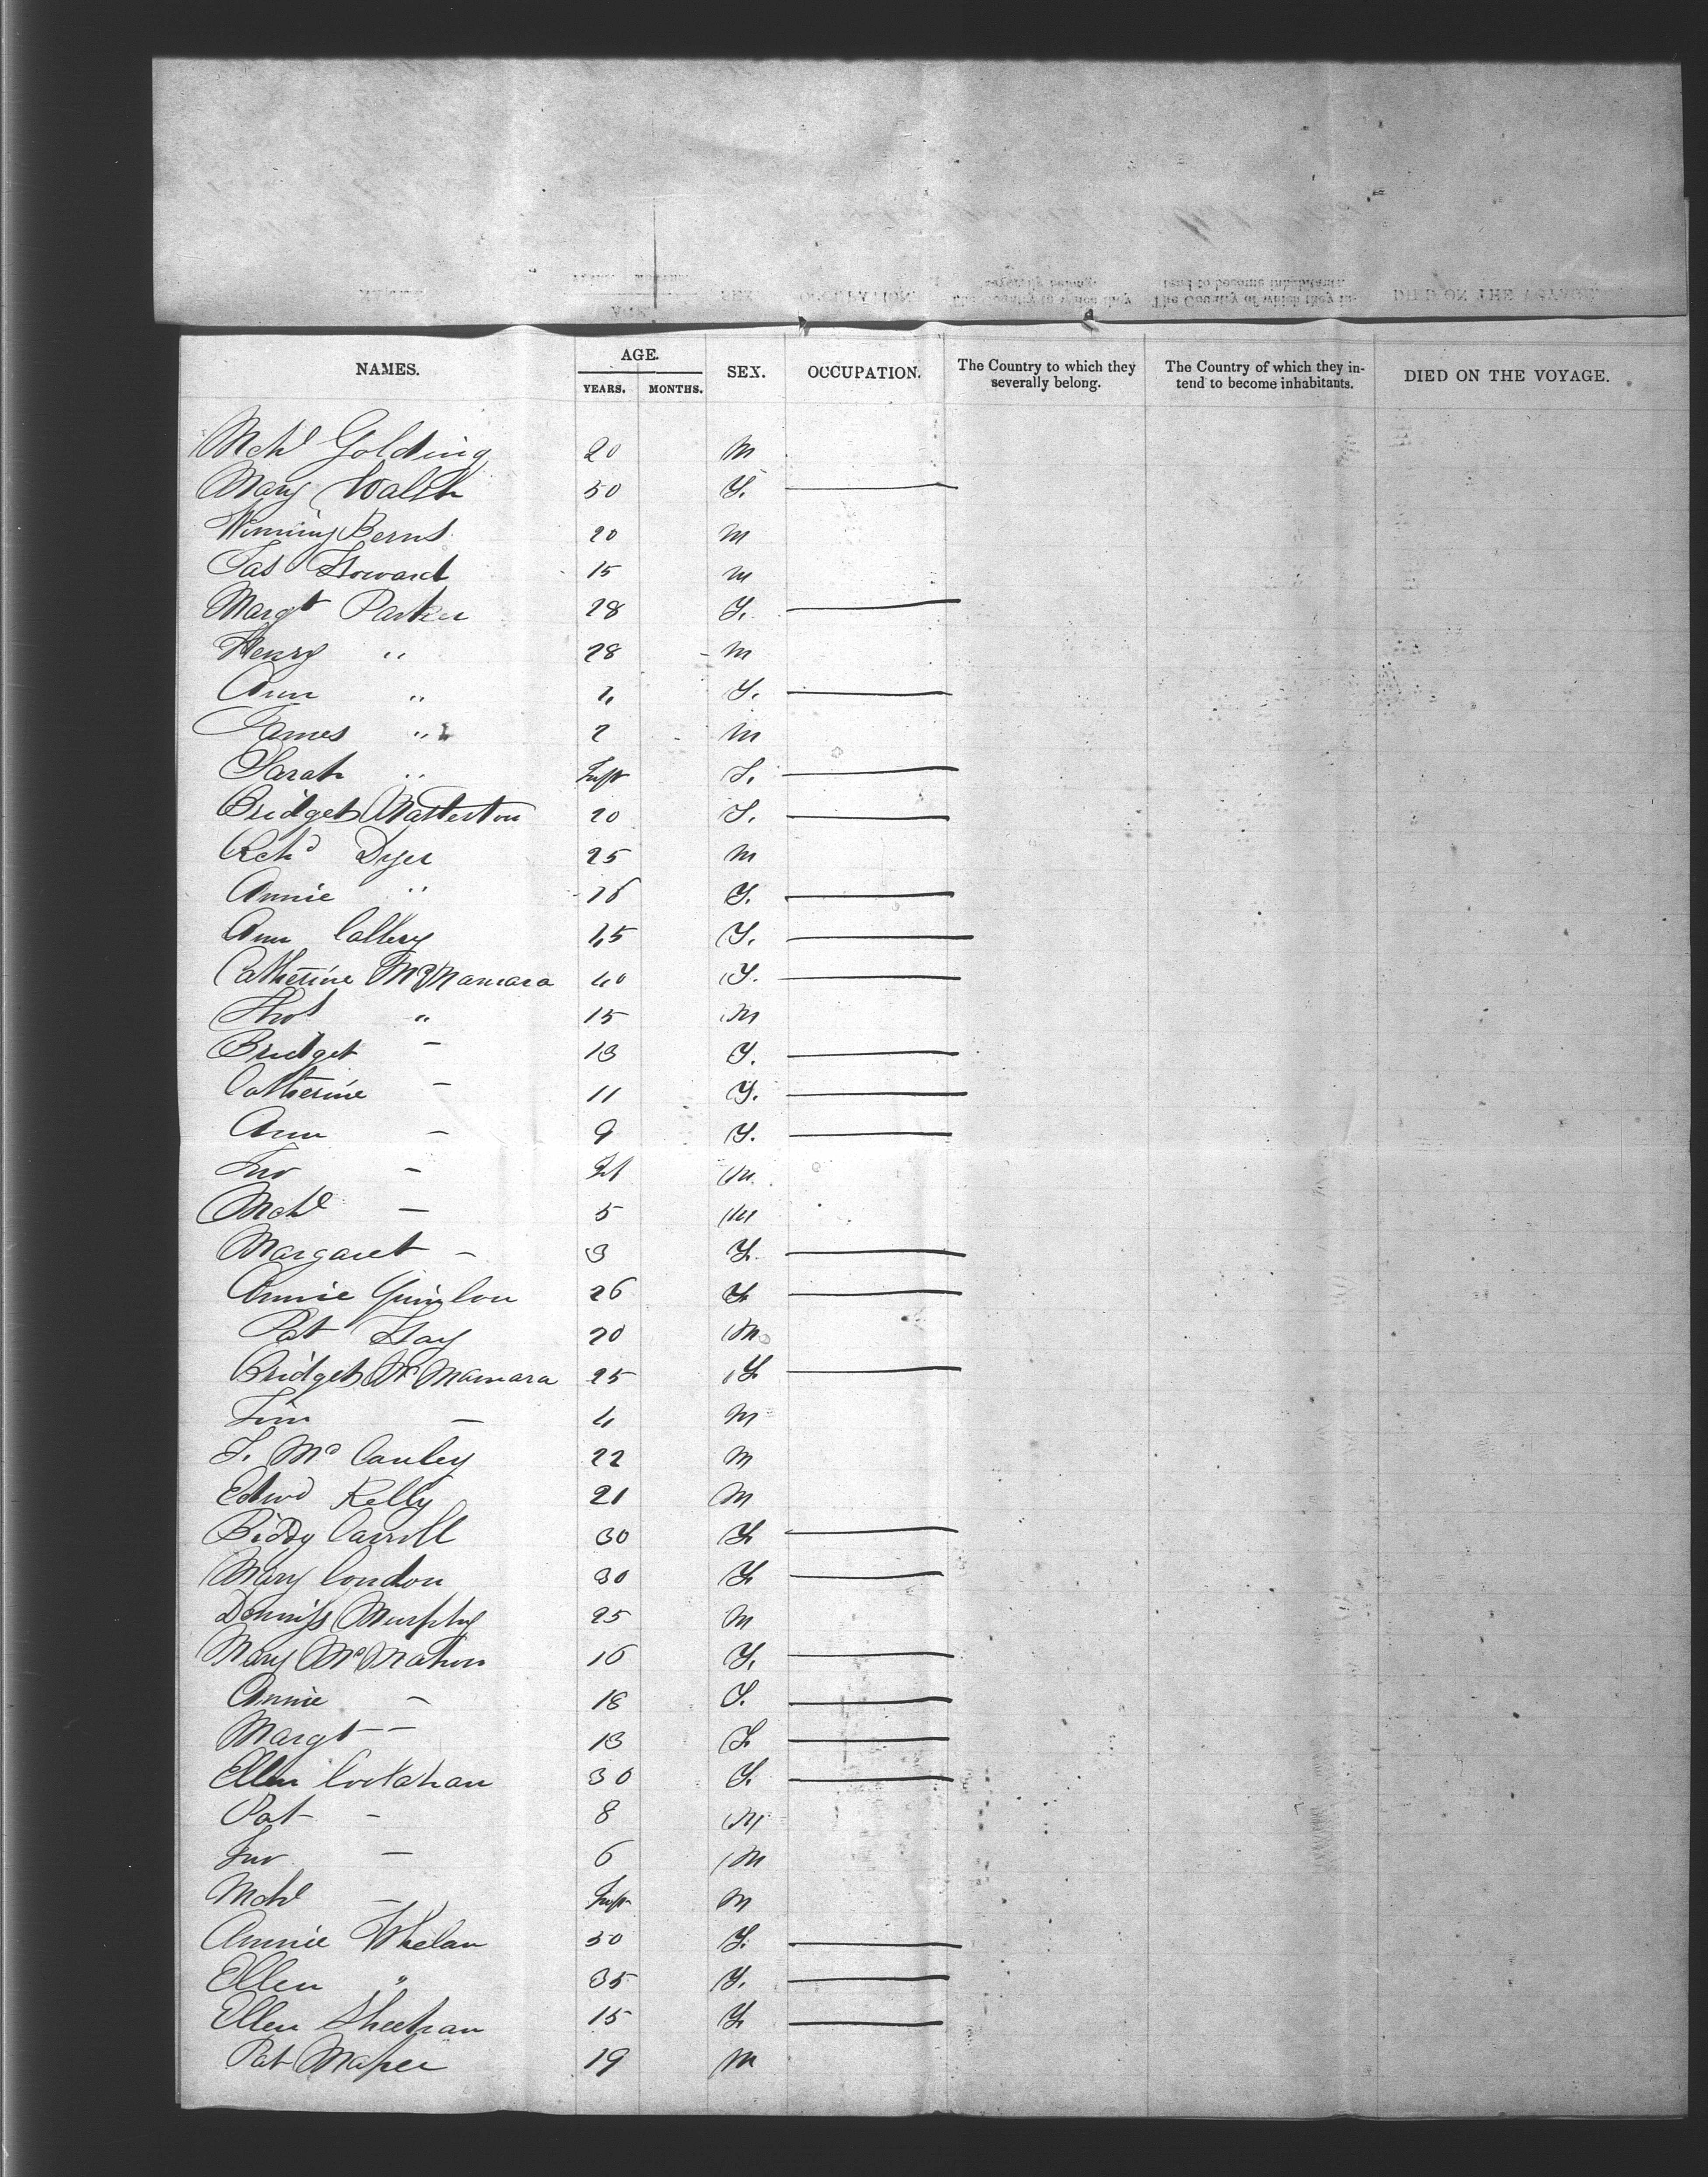 NAMES. AGE. YEARS. MONTHS. SEX. OCCUPATION. The Country to which they severally belong. The Country of which they intend to become inhabitants. DIED ON THE VOYAGE.
Mchl Golding 20 M
Mary Walsh 50 F. —
Winning Berns 20 M
Jas Howard 15 M
Margt Parker 28 F. —
Henry " 28 M
Ann " 4 F. —
James " 2 M
Sarah " Inft F. —
Bridget Masterton 20 F. —
Richd Dyer 25 M
Annie " 26 F. —
Ann Callery 45 F. —
Catherine McNamara 40 F. —
Thos " 15 M
Bridget — 13 F. —
Catherine — 11 F. —
Ann — 9 F. —
Jno — M
Mchl — 5 M
Margaret — 3 F. —
Annie Quinlon 26 F. —
Pat Hay 20 M
Bridget McNamara 25 F —
Tim — 4 M
T. McCauley 22 M
Edwd Kelly 21 M
Biddy Carroll 30 F —
Mary Condon 30 F —
Denniss Murphy 25 M
Mary McMahon 16 F. —
Annie — 18 F. —
Margt — 13 F —
Ellen 30 F. —
Pat — 8 M
Jno — 6 M
Mchl — Inft M
Annie Whelan 50 F. —
Ellen " 35 F. —
Ellen Sheehan 15 F —
Pat Maher 19 M